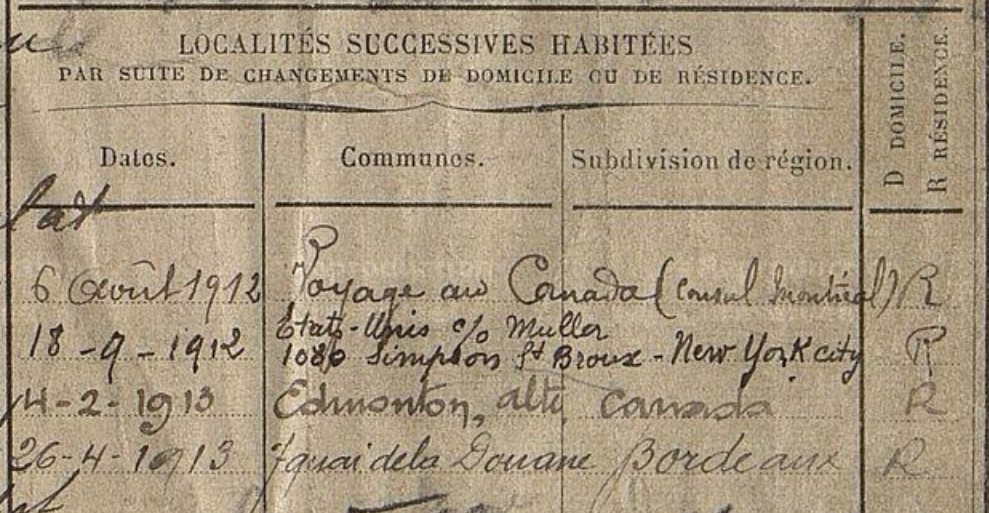 LOCALITÉS SUCCESSIVES HABITÉES
PAR SUITE DE CHANGEMENTS DE DOMICILE OU DE RÉSIDENCE.
D DOMICILE.
R RÉSIDENCE.
Dates. Communes. Subdivision de région.
6 Août 1912 Voyage au Canada (Consul Montréal) R
18-9-1912 États-Unis c/o Muller
1086 Simpson St Bronx - New York city R
14-2-1913 Edmonton, alta, Canada R
26-4-1913 7 quai de la Douane Bordeaux R